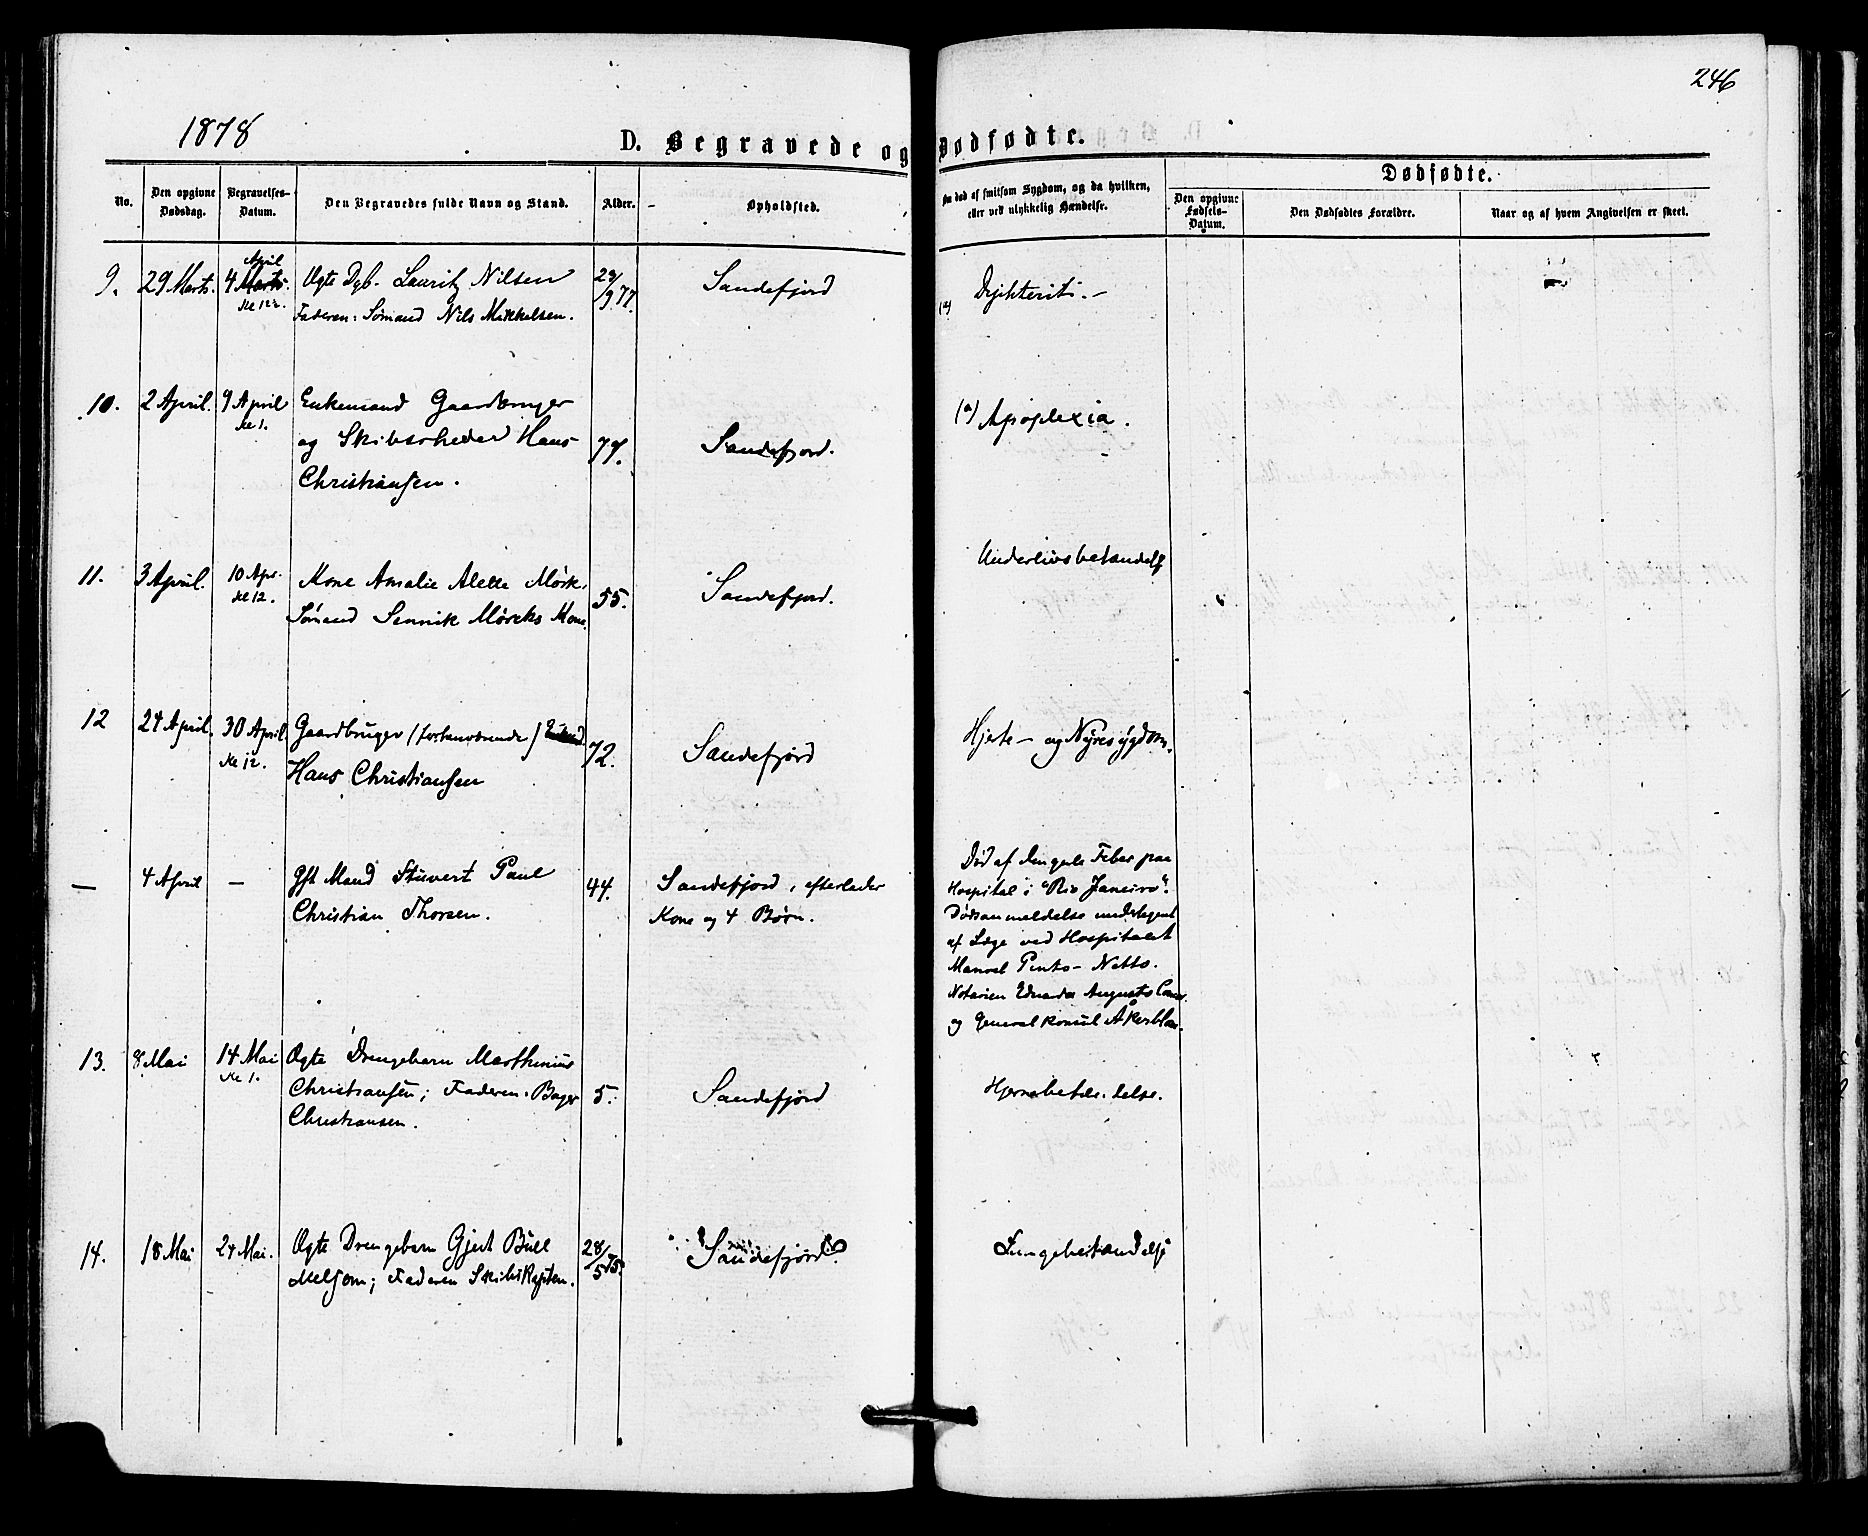 246
1878
D. Begravede og Dødfødte.
No.
Den opgivne Dødsdag.
Begravelses-Datum.
Den Begravedes fulde Navn og Stand.
Alder.
Opholdsted.
Om død af smitsom Sygdom, og da hvilken,
eller ved ulykkelig Hændelse.
Dødfødte.
Den opgivne Fødsels-Datum.
Den Dødfødtes Forældre.
Naar og af hvem Angivelsen er skeet.
9. 29 Marts. 4 April Marts. Kl 12½.
Ægte Dgb. Lauritz Nilsen
Faderen: Sømand Nils Mikkelsen.
29/9 77.
Sandefjord
Diphterit. –
10. 2 April. 9 April Kl 1.
Enkemand Gaardbruger
og Skibsrheder Hans
Christiansen.
79.
Sandefjord.
Apoplexia.
11. 3 April. 10 Apr. Kl 12.
Kone Amalie Alette Mørk.
Sømand Sennik Mørchs Kone.
55.
Sandefjord.
Underlivsbetændelse
12 24 April. 30 April. Kl 12.
Gaardbruger (forhenværende)
Hans Christiansen
72.
Sandefjord
Hjerte- og Nyresygdom.
— 4 April —
Gft Mand Stuvert Paul
Christian Thorsen.
44.
Sandefjord, efterlader
Kone og 4 Børn.
Død af Feber paa
Hospital i "Rio Janeiro".
Dødsanmeldelse undertegnet
af Læge ved Hospitalet
Manoel Pinto-Netto.
Notarien Eduardo Augusto
og General konsul Åkerblom.
13. 8 Mai 14 Mai Kl 1.
Ægte Drengebarn Marthinius
Christiansen; Faderen: Bager
Christiansen.
5.
Sandefjord
14. 18 Mai 24 Mai.
Ægte Drengebarn Gjert Bull
Melsom; Faderen Skibskapten.
28/5 75.
Sandefjord.
Lungebetændelse